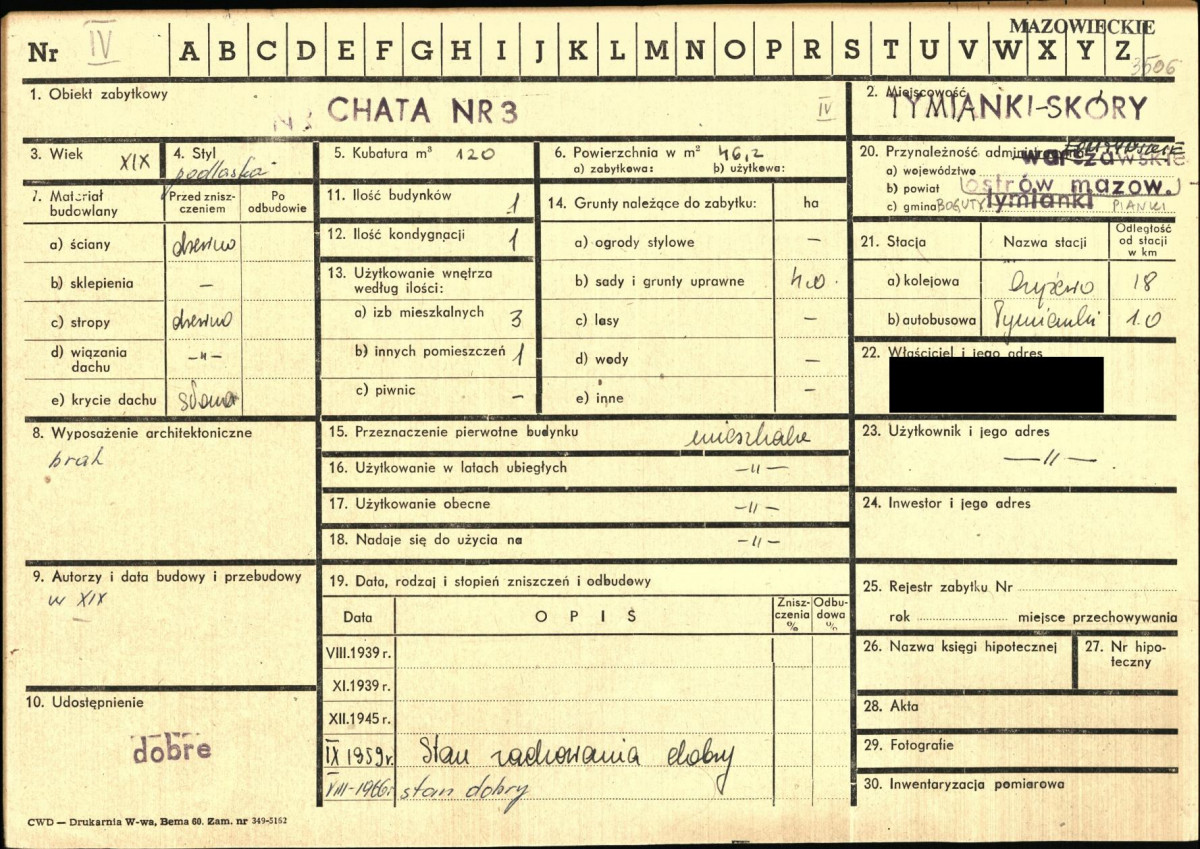 MAZOWIECKIE
Nr IV A B C D E F G H I J K L M N O P R S T U V W X Y Z
3506
1. Obiekt zabytkowy
CHATA NR 3
IV
2. Miejscowość
TYMIANKI-SKÓRY
3. Wiek XIX
4. Styl podlaska
5. Kubatura m³ 120
6. Powierzchnia w m² 46,2
a) zabytkowa: b) użytkowa:
7. Materiał budowlany
Przed zniszczeniem
Po odbudowie
a) ściany drewno
b) sklepienia –
c) stropy drewno
d) wiązania dachu –"–
e) krycie dachu słoma
8. Wyposażenie architektoniczne
brak
9. Autorzy i data budowy i przebudowy
w XIX
10. Udostępnienie
dobre
11. Ilość budynków 1
12. Ilość kondygnacji 1
13. Użytkowanie wnętrza według ilości:
a) izb mieszkalnych 3
b) innych pomieszczeń 1
c) piwnic –
14. Grunty należące do zabytku: ha
a) ogrody stylowe –
b) sady i grunty uprawne 4,0
c) lasy –
d) wody –
e) inne –
15. Przeznaczenie pierwotne budynku mieszkalne
16. Użytkowanie w latach ubiegłych –"–
17. Użytkowanie obecne –"–
18. Nadaje się do użycia na –"–
19. Data, rodzaj i stopień zniszczeń i odbudowy
Data
OPIS
Zniszczenia %
Odbudowa %
VIII.1939 r.
XI.1939 r.
XII.1945 r.
IX 1959 r. Stan zachowania dobry
VIII-1966 r. stan dobry
20. Przynależność administracyjna
a) województwo warszawskie
b) powiat ostrów mazow.
c) gmina BOGUTY tymianki PIANKI
21. Stacja
Nazwa stacji
Odległość od stacji w km
a) kolejowa Czyżewo 18
b) autobusowa Tymianki 1.0
22. Właściciel i jego adres
23. Użytkownik i jego adres
–"–
24. Inwestor i jego adres
25. Rejestr zabytku Nr
rok miejsce przechowywania
26. Nazwa księgi hipotecznej
27. Nr hipoteczny
28. Akta
29. Fotografie
30. Inwentaryzacja pomiarowa
CWD — Drukarnia W-wa, Bema 60. Zam. nr 349-5162